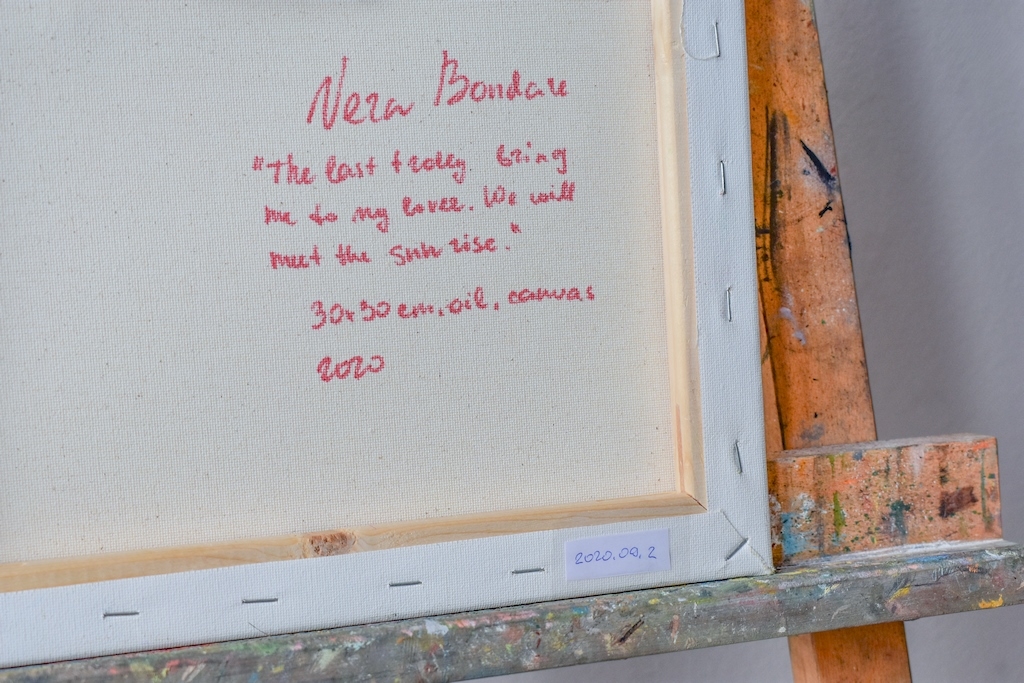 Nera Bondare
"The last trolley bring
me to my lover. We will
meet the sunrise."
30x30 cm, oil, canvas
2020
2020.09.2